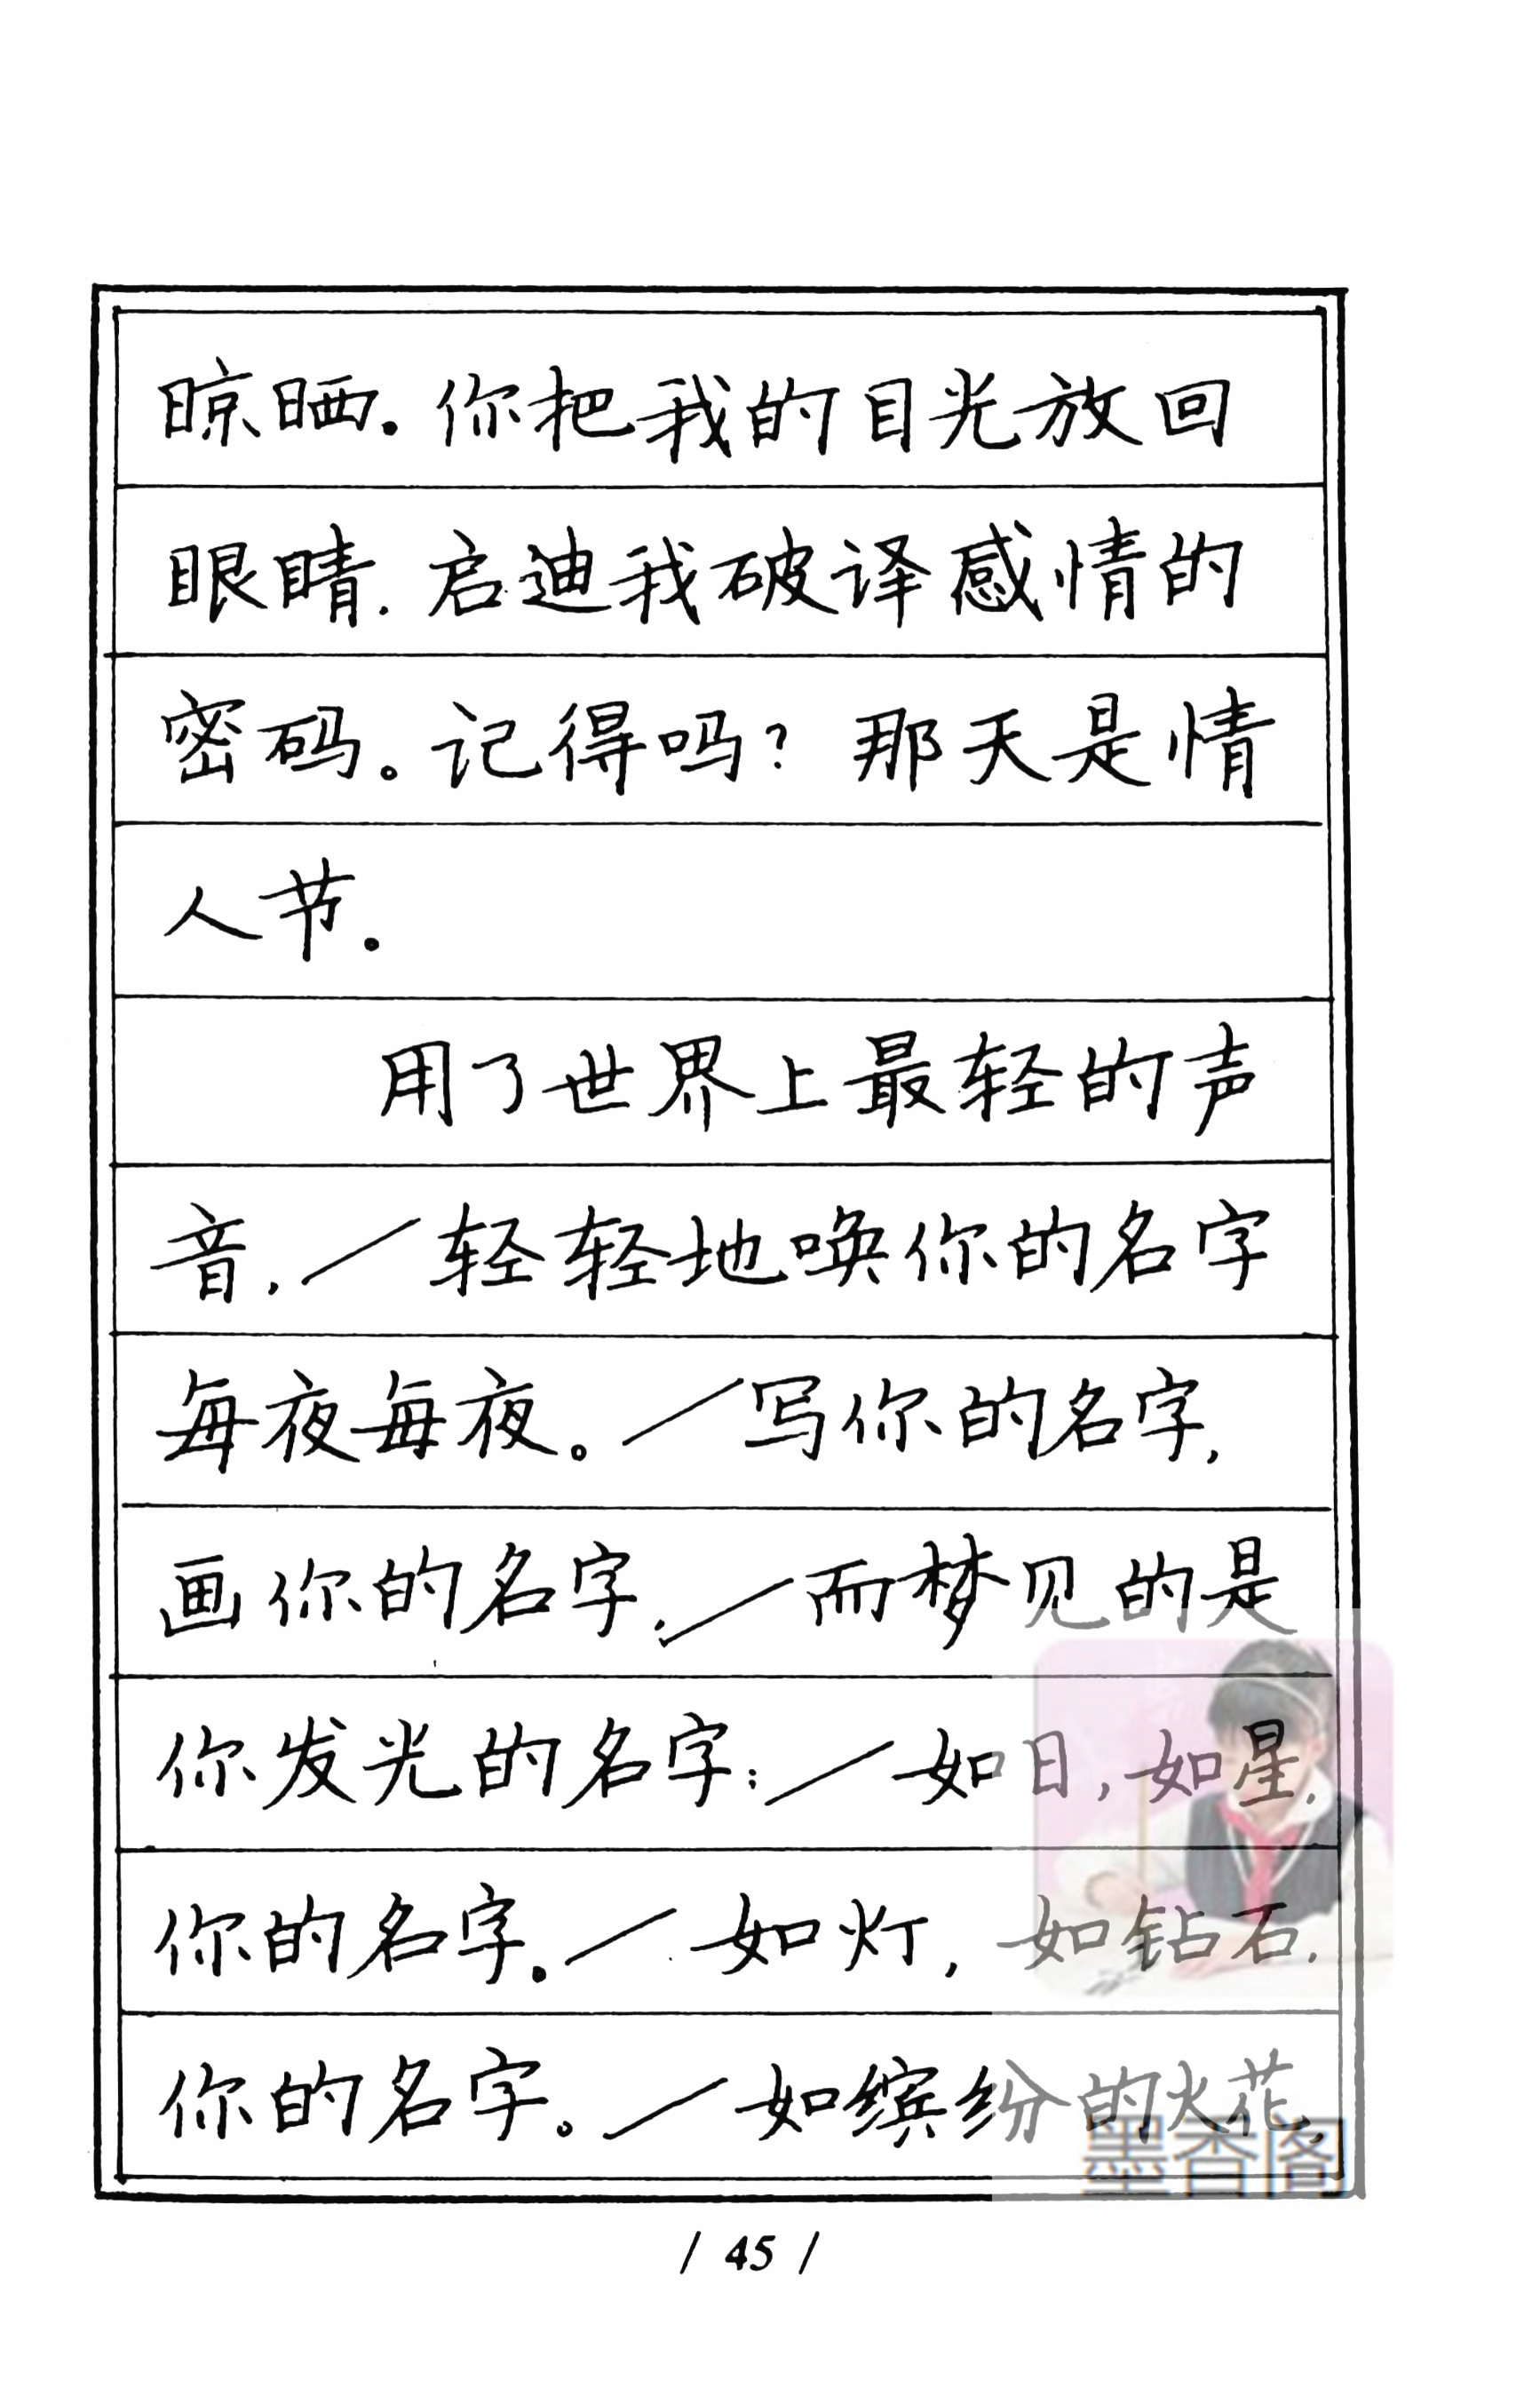 晾晒。你把我的目光放回
眼睛.启迪我破译感情的
密码。记得吗？那天是情
人节。
用了世界上最轻的声
音，／轻轻地唤你的名字
每夜每夜。／写你的名字，
画你的名字.／而梦见的是
你发光的名字：／如日，如星，
你的名字。／如灯，如钻石.
你的名字。／如缤纷的火花，
墨香阁
/ 45 /